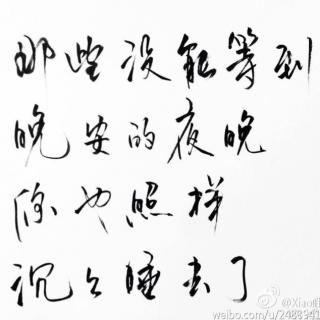 那些没能等到
晚安的夜晚
你也照样
沉沉睡去了
@Xiao
weibo.com/u/2488941